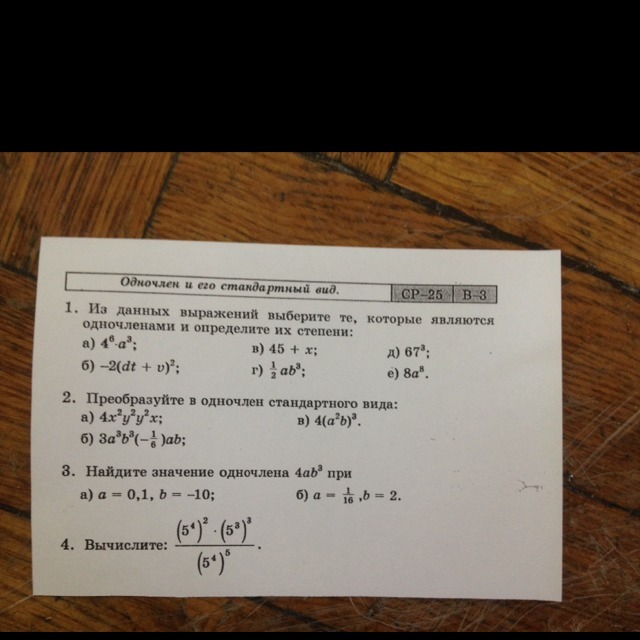 Одночлен и его стандартный вид. СР–25 В–3
1. Из данных выражений выберите те, которые являются
одночленами и определите их степени:
а) 4⁶·a³; в) 45 + x; д) 67³;
б) –2(dt + v)²; г) 1/2 ab³; е) 8a⁸.
2. Преобразуйте в одночлен стандартного вида:
а) 4x²y²y²x; в) 4(a²b)³.
б) 3a³b³(–1/6)ab;
3. Найдите значение одночлена 4ab³ при
а) a = 0,1, b = –10; б) a = 1/16 ,b = 2.
4. Вычислите: (5⁴)² · (5³)³ / (5⁴)⁵ .